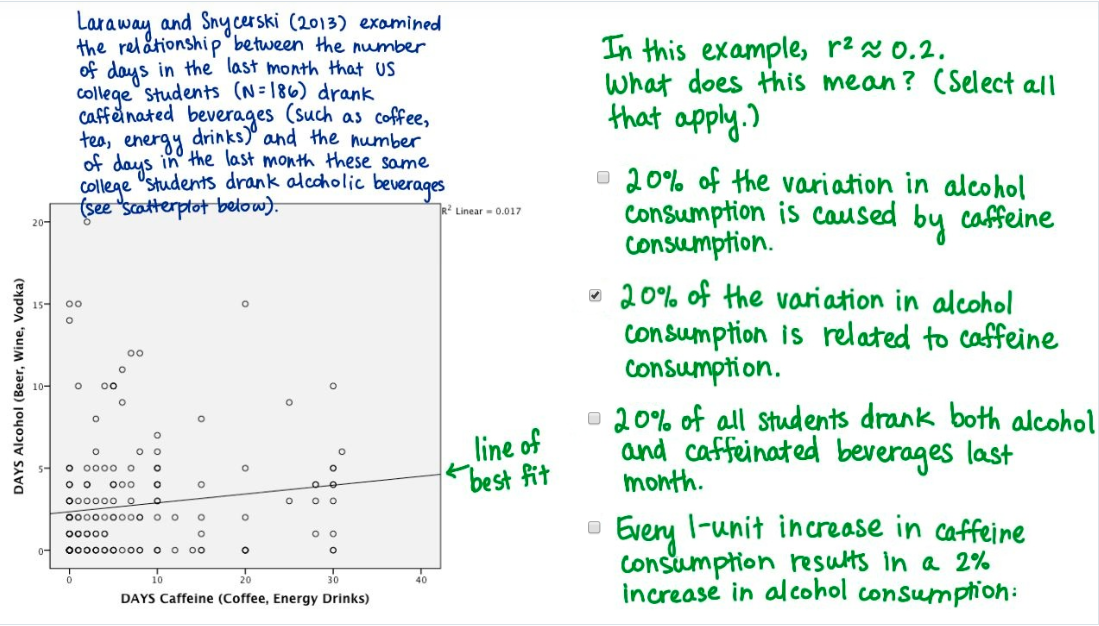 Laraway and Snycerski (2013) examined
the relationship between the number
of days in the last month that US
college students (N=186) drank
caffeinated beverages (such as coffee,
tea, energy drinks) and the number
of days in the last month these same
college students drank alcoholic beverages
(see scatterplot below).
R² Linear = 0.017
20
15
10
5
0
DAYS Alcohol (Beer, Wine, Vodka)
0 10 20 30 40
DAYS Caffeine (Coffee, Energy Drinks)
line of
best fit
In this example, r² ≈ 0.2.
What does this mean? (Select all
that apply.)
20% of the variation in alcohol
consumption is caused by caffeine
consumption.
20% of the variation in alcohol
consumption is related to caffeine
consumption.
20% of all students drank both alcohol
and caffeinated beverages last
month.
Every 1-unit increase in caffeine
consumption results in a 2%
increase in alcohol consumption: